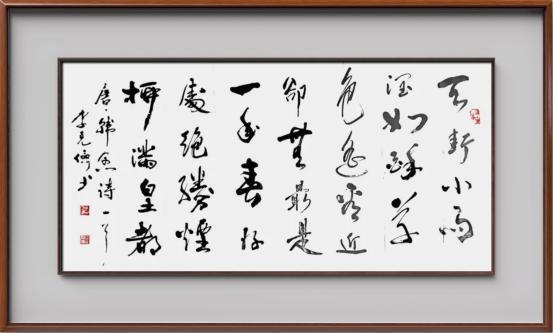 天街小雨
潤如酥草
色遙看近
卻無最是
一年春好
處絕勝煙
柳滿皇都
唐·韓愈詩一首
李克